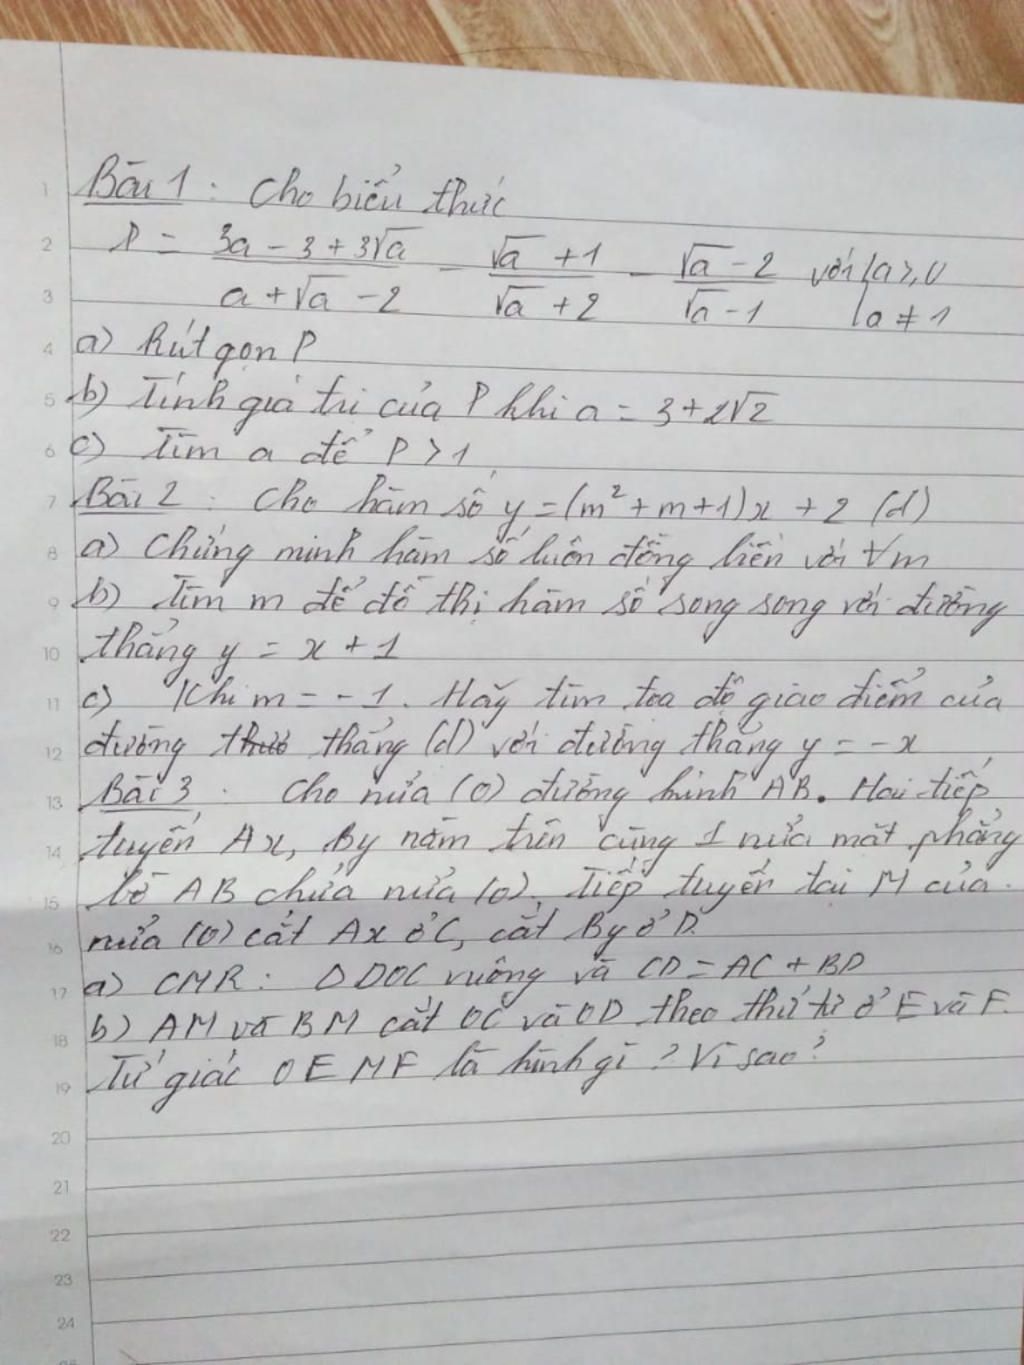 1 Bài 1 : Cho biểu thức
2 P = 3a - 3 + 3√a / a + √a - 2 - √a + 1 / √a + 2 - √a - 2 / √a - 1 với { a ≥ 0
3 a ≠ 1
4 a) Rút gọn P
5 b) Tính giá trị của P khi a = 3 + 2√2
6 c) Tìm a để P > 1
7 Bài 2 : Cho hàm số y = (m² + m + 1)x + 2 (d)
8 a) Chứng minh hàm số luôn đồng biến với ∀m
9 b) Tìm m để đồ thị hàm số song song với đường
10 thẳng y = x + 1
11 c) Khi m = - 1. Hãy tìm tọa độ giao điểm của
12 đường thẳng (d) với đường thẳng y = -x
13 Bài 3 : Cho nửa (O) đường kính AB. Hai tiếp
14 tuyến Ax, By nằm trên cùng 1 nửa mặt phẳng
15 bờ AB chứa nửa (O), Tiếp tuyến tại M của
16 nửa (O) cắt Ax ở C, cắt By ở D.
17 a) CMR : Δ DOC vuông và CD = AC + BD
18 b) AM và BM cắt OC và OD theo thứ tự ở E và F.
19 Tứ giác OEMF là hình gì ? Vì sao ?
20
21
22
23
24